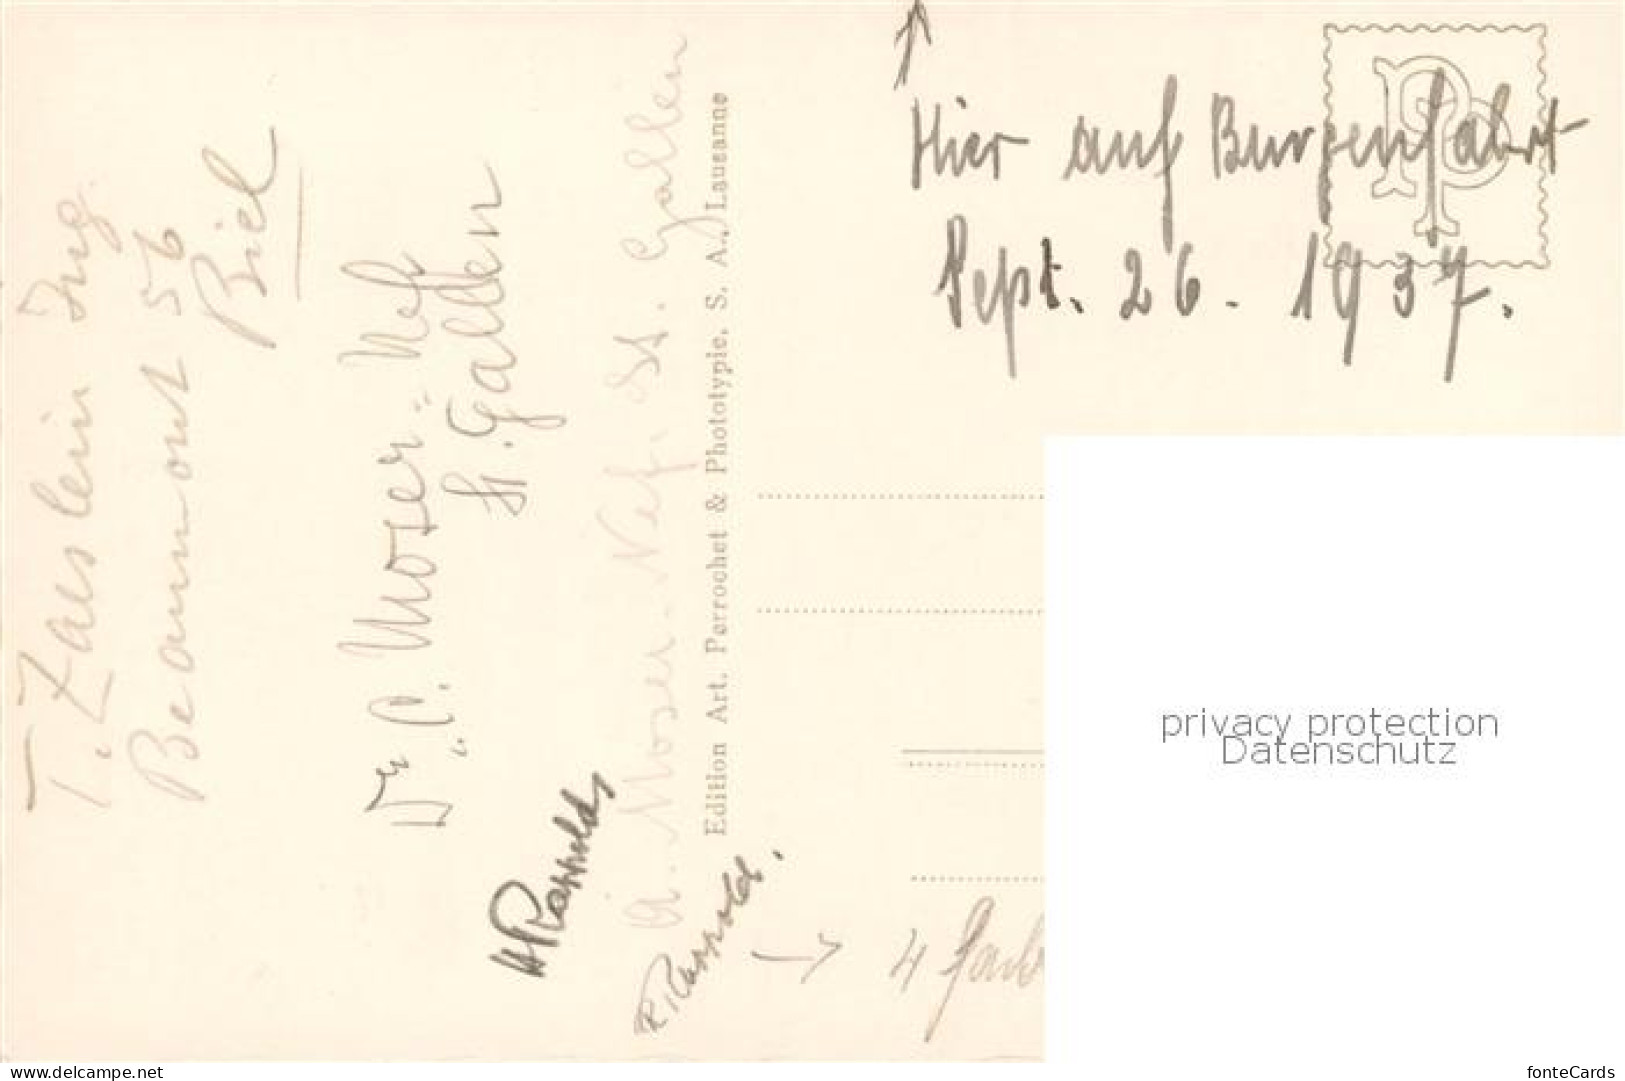 Hier auf Burgenfahrt
Sept. 26. 1937.
T. Zaeslein Ing.
Beaumont 56
Biel
Dr. C. Moser-Nef
St. Gallen
A. Moser-Nef. St. Gallen
Edition Art. Perrochet & Phototypie. S. A., Lausanne
Rappold
Rappold.
4
PP
privacy protection
Datenschutz
www.delcampe.net
fonteCards